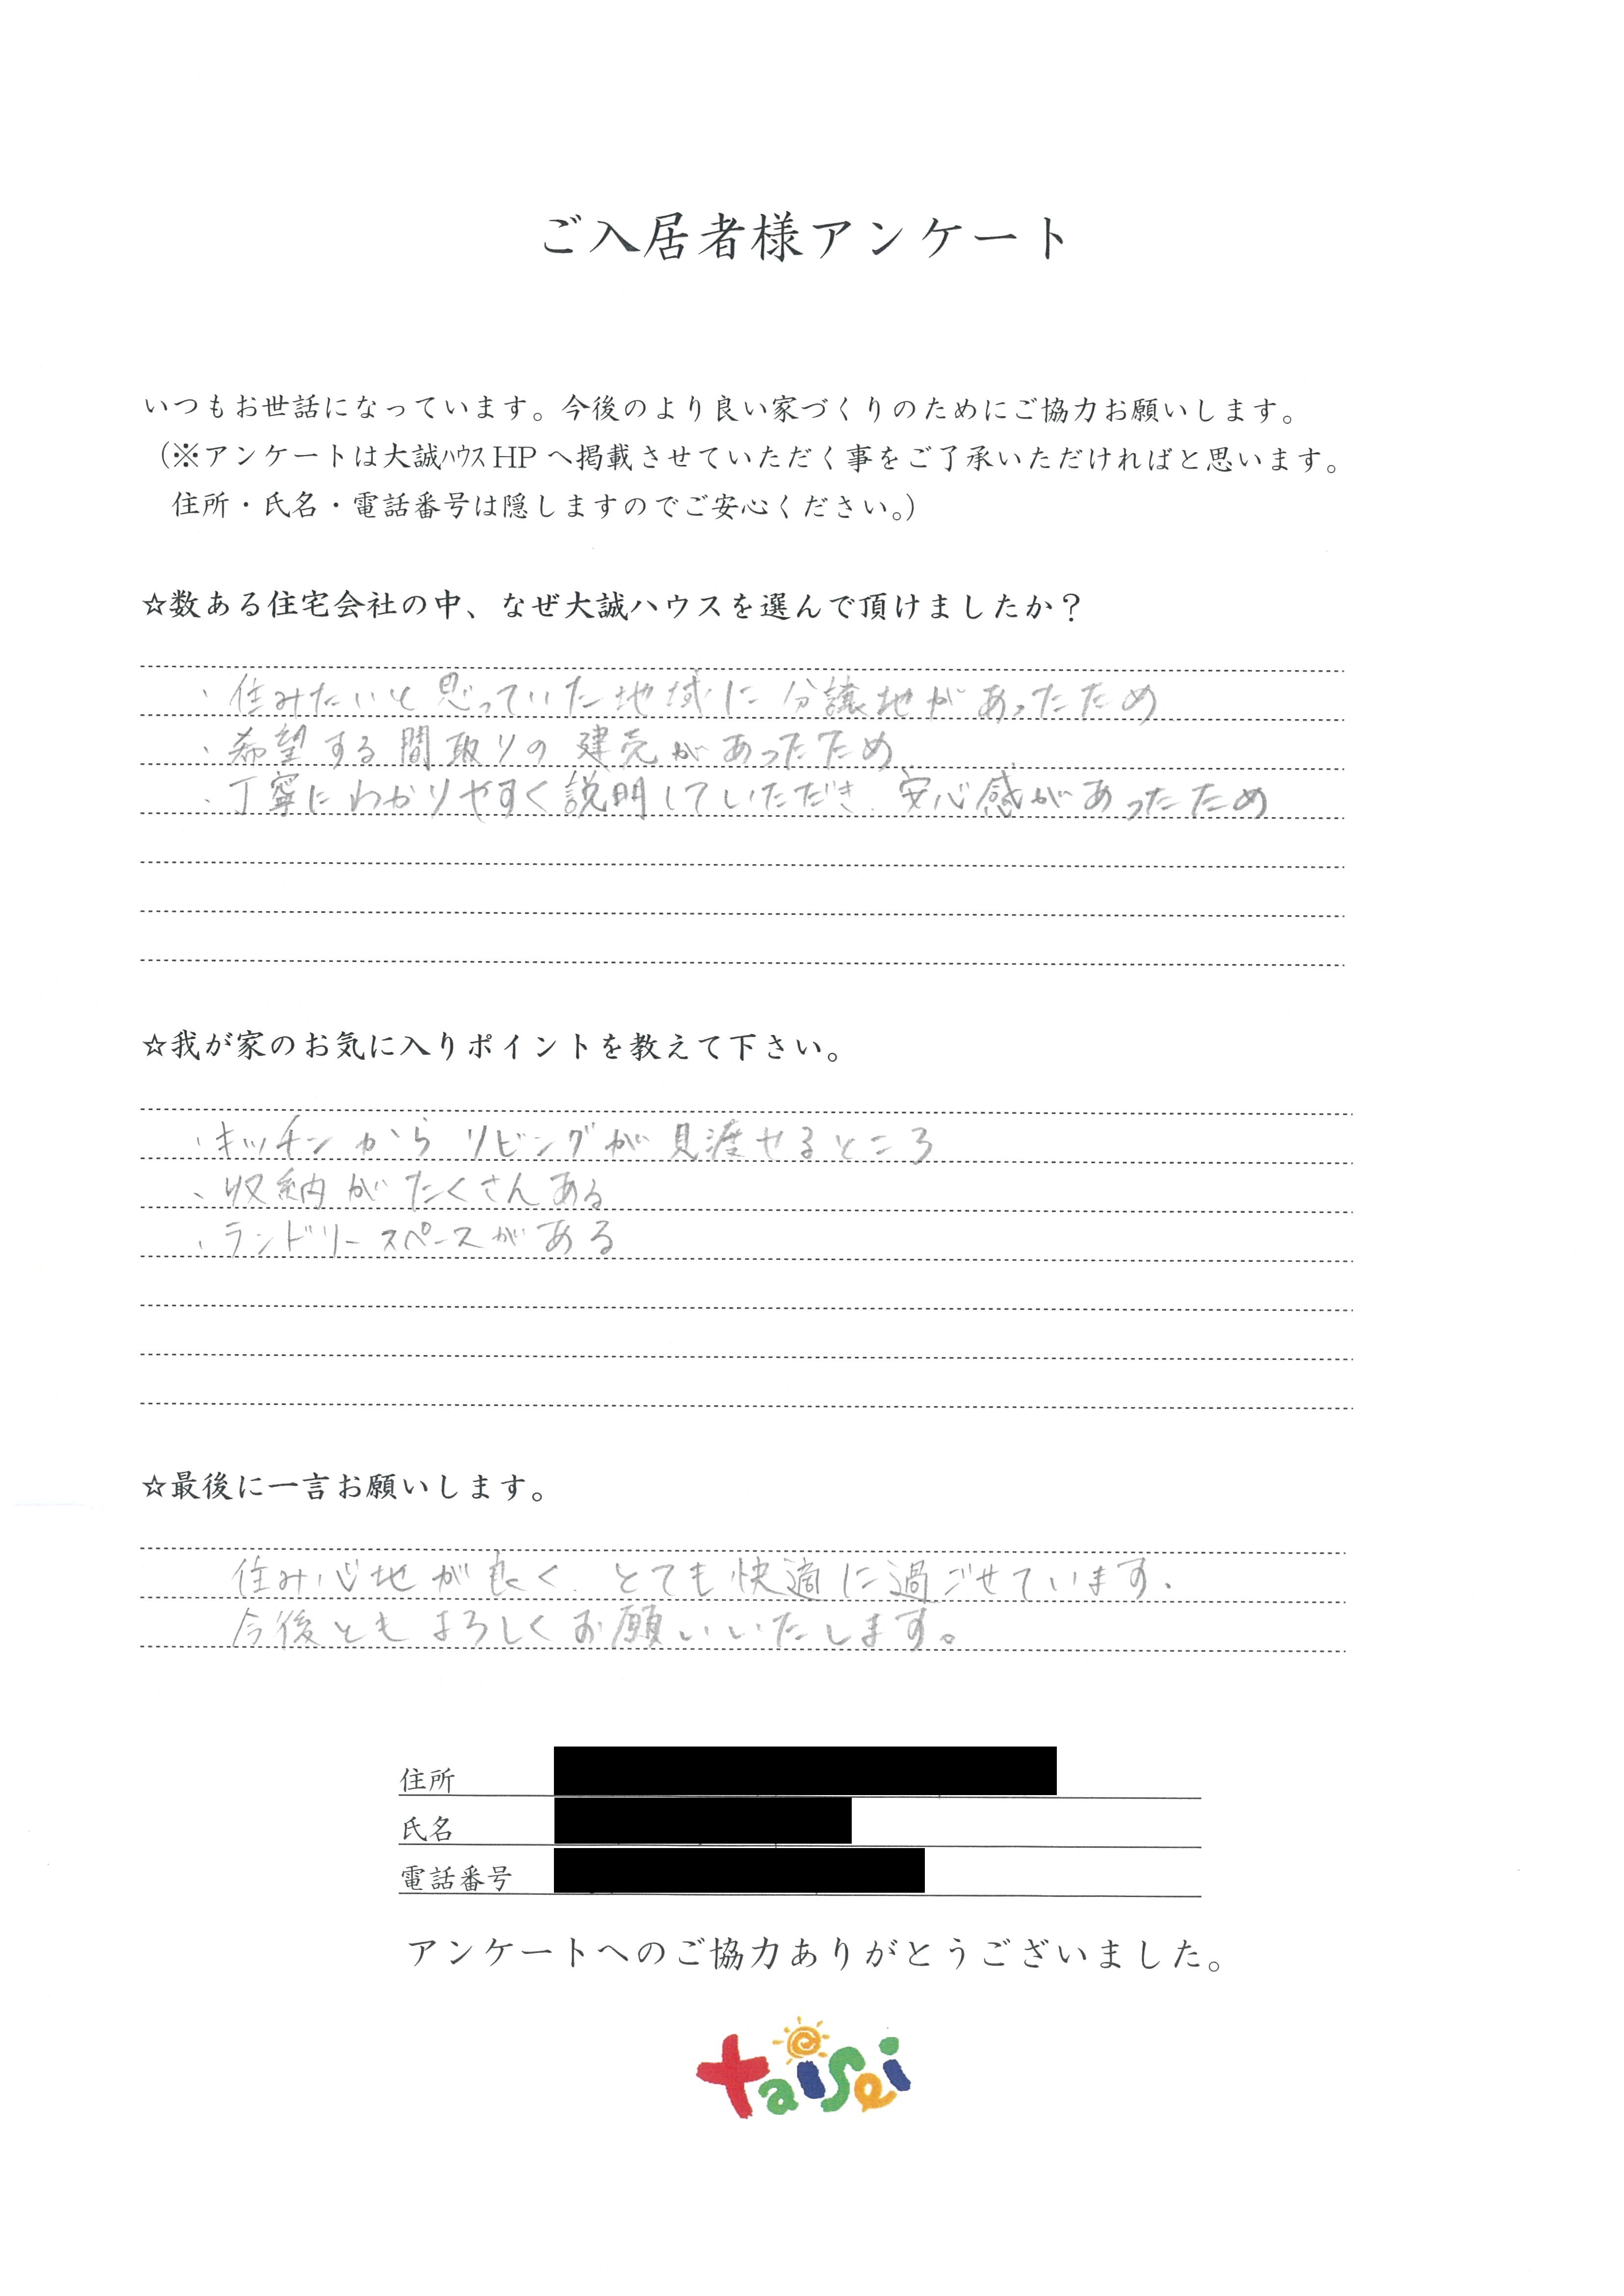 ご入居者様アンケート
いつもお世話になっています。今後のより良い家づくりのためにご協力お願いします。
（※アンケートは大誠ﾊｳｽHPへ掲載させていただく事をご了承いただければと思います。
住所・氏名・電話番号は隠しますのでご安心ください。）
☆数ある住宅会社の中、なぜ大誠ハウスを選んで頂けましたか？
・住みたいと思っていた地域に分譲地があったため
・希望する間取りの建売があったため
・丁寧にわかりやすく説明していただき、安心感があったため
☆我が家のお気に入りポイントを教えて下さい。
・キッチンからリビングが見渡せるところ
・収納がたくさんある
・ランドリースペースがある
☆最後に一言お願いします。
住み心地が良く、とても快適に過ごせています。
今後ともよろしくお願いいたします。
住所
氏名
電話番号
アンケートへのご協力ありがとうございました。
taisei